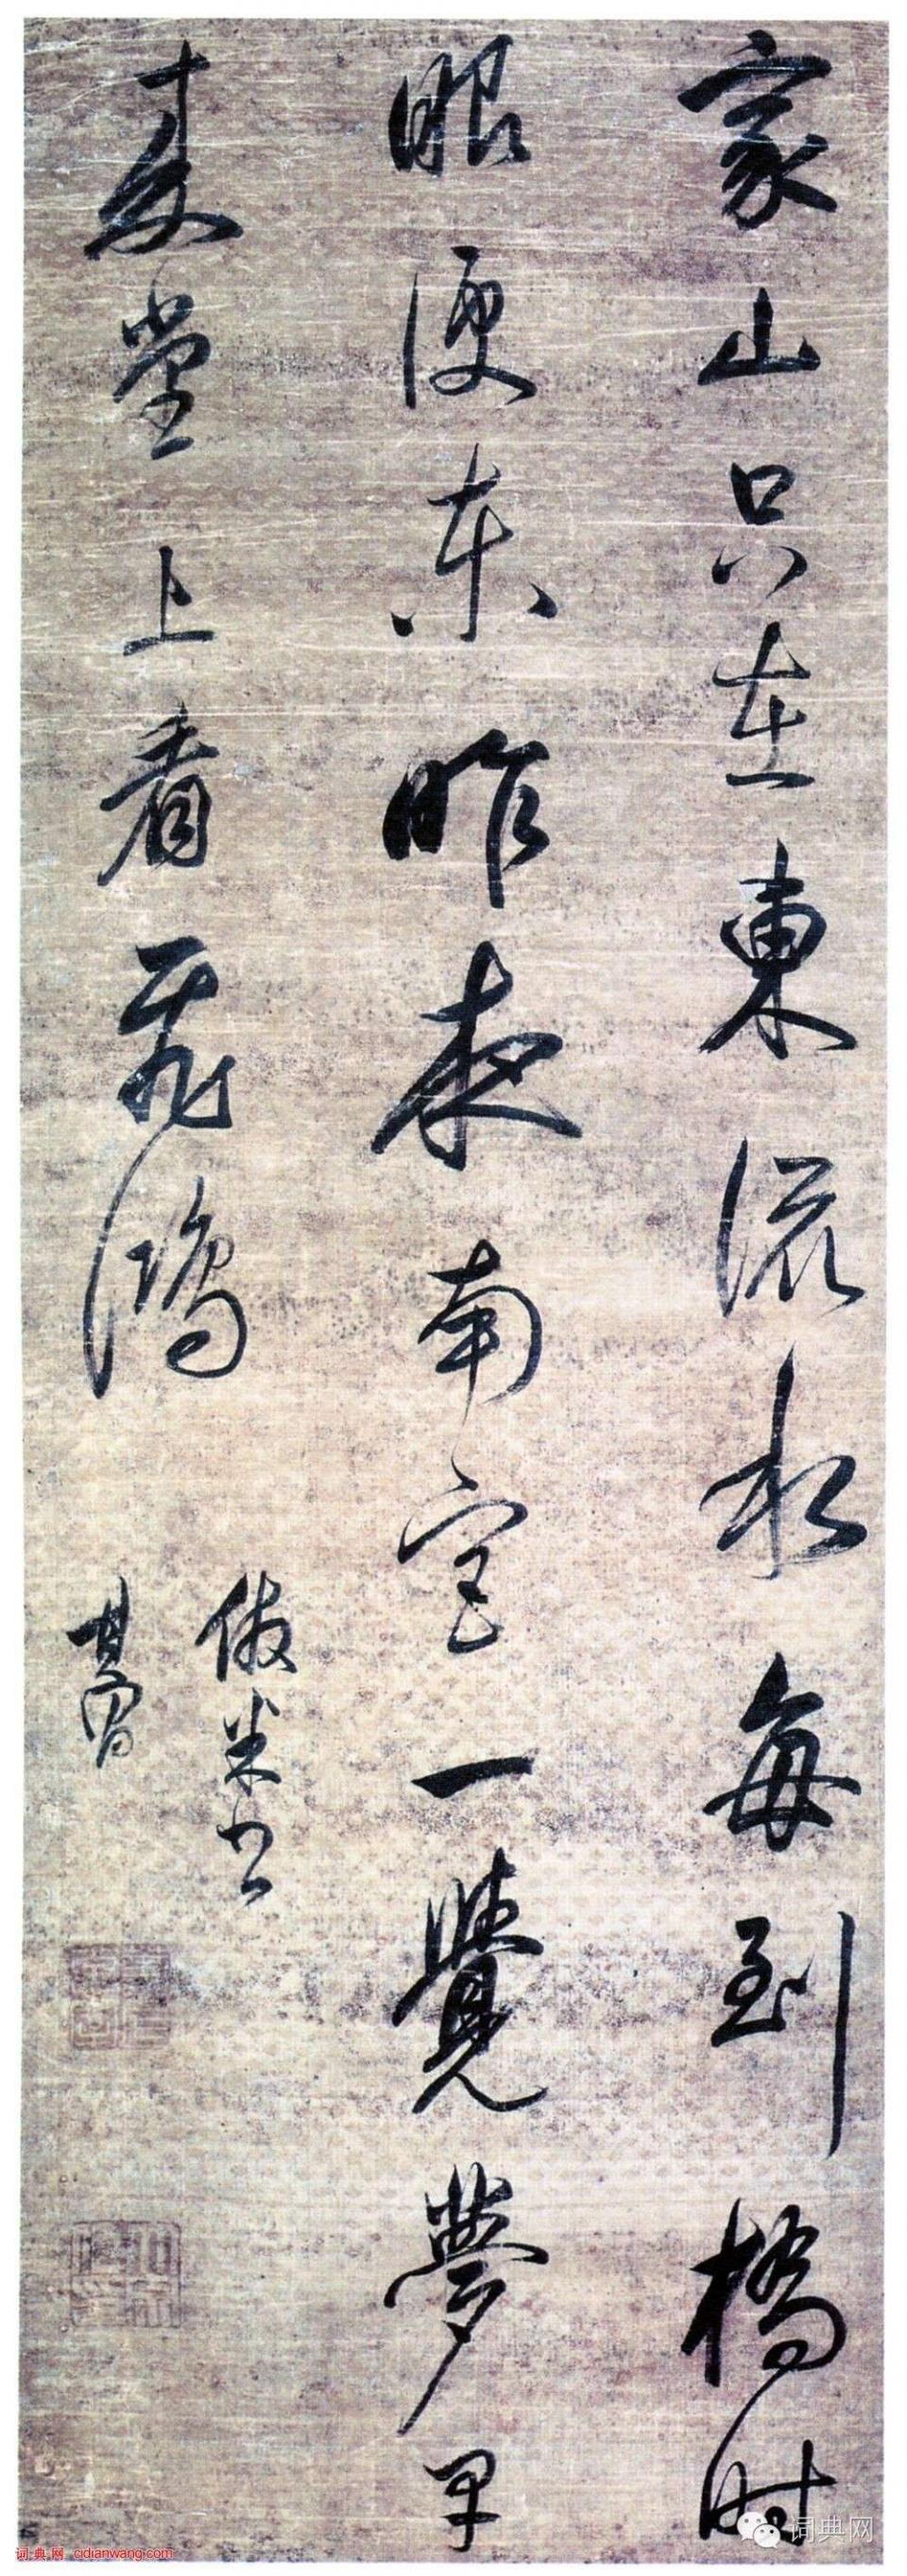 家山只在東流水每到橋時
眼便東昨夜南一覺夢
堂上看飛鴻
倣米書
其昌
词典网
词典网 cidianwang.com